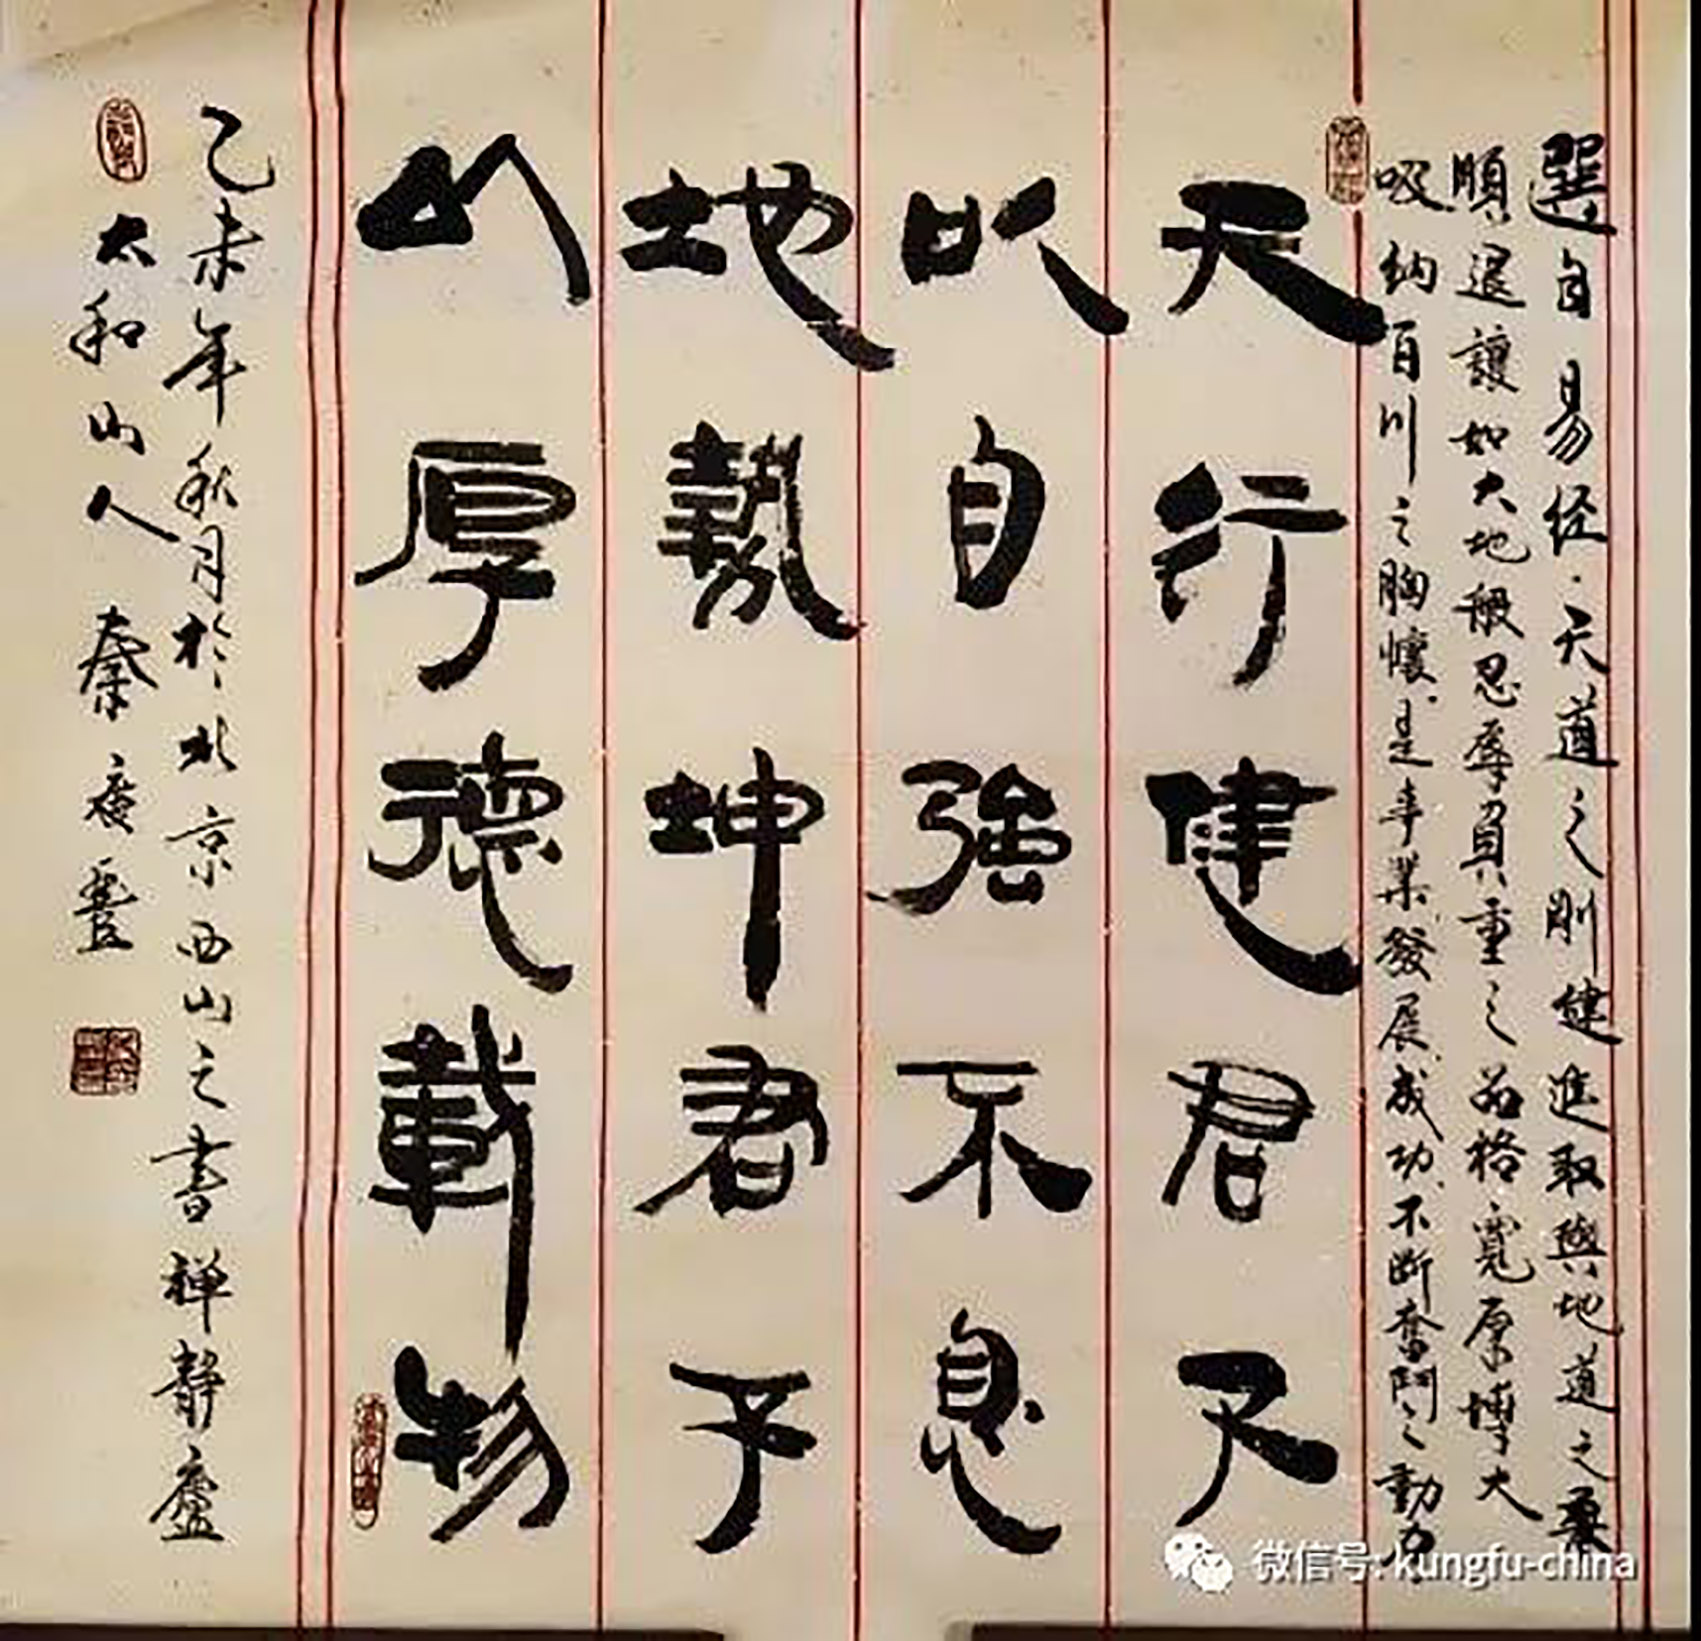 選自易经·天道之剛健進取與地道之柔
順退讓如大地般忍辱負重之品格寬厚博大
吸納百川之胸懷是事業發展成功不斷奮鬥之動力
天行健君子
以自強不息
地勢坤君子
以厚德載物
乙未年秋月於北京西山之書禅静廬
太和山人秦彦
微信号: kungfu-china